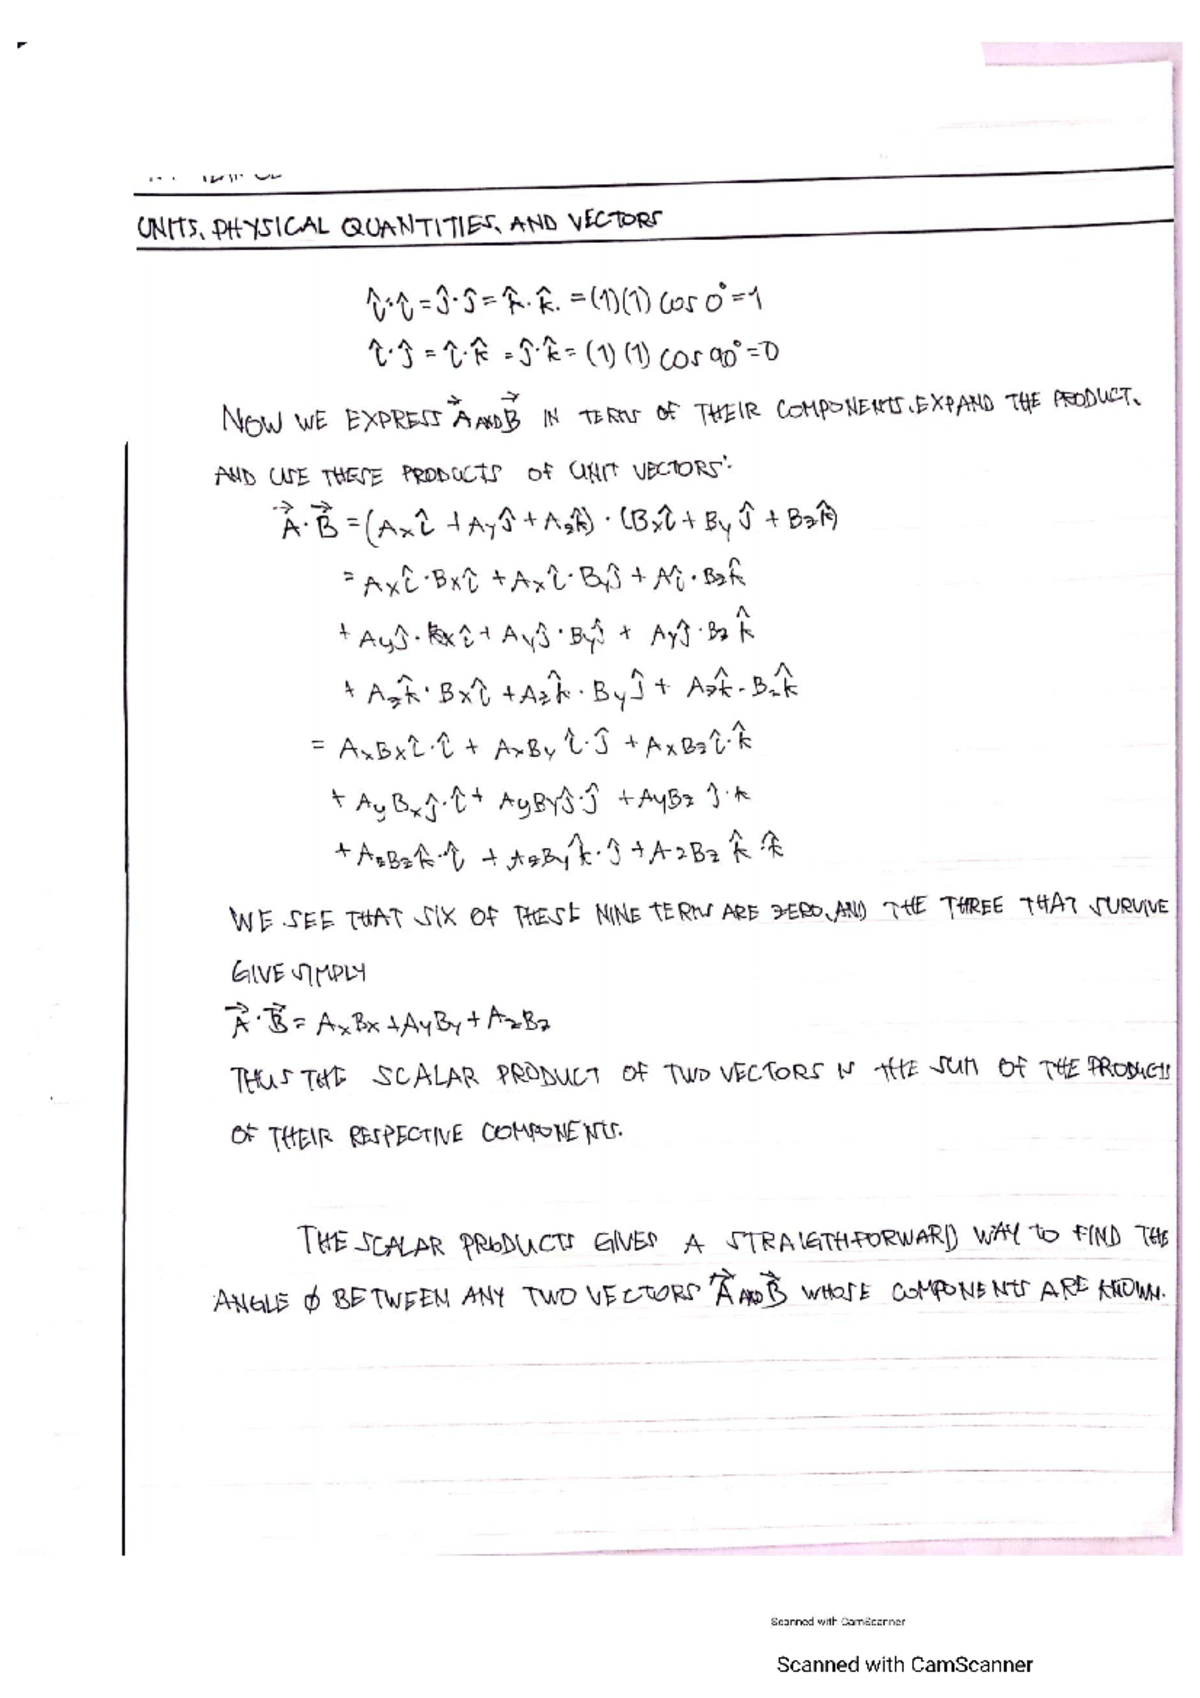 UNITS, PHYSICAL QUANTITIES, AND VECTORS
î·î = ĵ·ĵ = k̂·k̂. = (1)(1) cos 0° = 1
î·ĵ = î·k̂ = ĵ·k̂ = (1)(1) cos 90° = 0
NOW WE EXPRESS A⃗ AND B⃗ IN TERMS OF THEIR COMPONENTS, EXPAND THE PRODUCT,
AND USE THESE PRODUCTS OF UNIT VECTORS:
A⃗·B⃗ = (Axî + Ayĵ + Azk̂) · (Bxî + Byĵ + Bzk̂)
= Axî·Bxî + Axî·Byĵ + Aî·Bzk̂
+ Ayĵ·Bxî + Ayĵ·Byĵ + Ayĵ·Bzk̂
+ Azk̂·Bxî + Azk̂·Byĵ + Azk̂·Bzk̂
= AxBxî·î + AxByî·ĵ + AxBzî·k̂
+ AyBxĵ·î + AyByĵ·ĵ + AyBz ĵ·k
+ AzBzk̂·î + AzByk̂·ĵ + AzBz k̂·k̂
WE SEE THAT SIX OF THESE NINE TERMS ARE ZERO, AND THE THREE THAT SURVIVE
GIVE SIMPLY
A⃗·B⃗ = AxBx + AyBy + AzBz
THUS THE SCALAR PRODUCT OF TWO VECTORS IS THE SUM OF THE PRODUCTS
OF THEIR RESPECTIVE COMPONENTS.
THE SCALAR PRODUCTS GIVES A STRAIGTHFORWARD WAY TO FIND THE
ANGLE ϕ BETWEEN ANY TWO VECTORS A⃗ AND B⃗ WHOSE COMPONENTS ARE KNOWN.
Scanned with CamScanner
Scanned with CamScanner